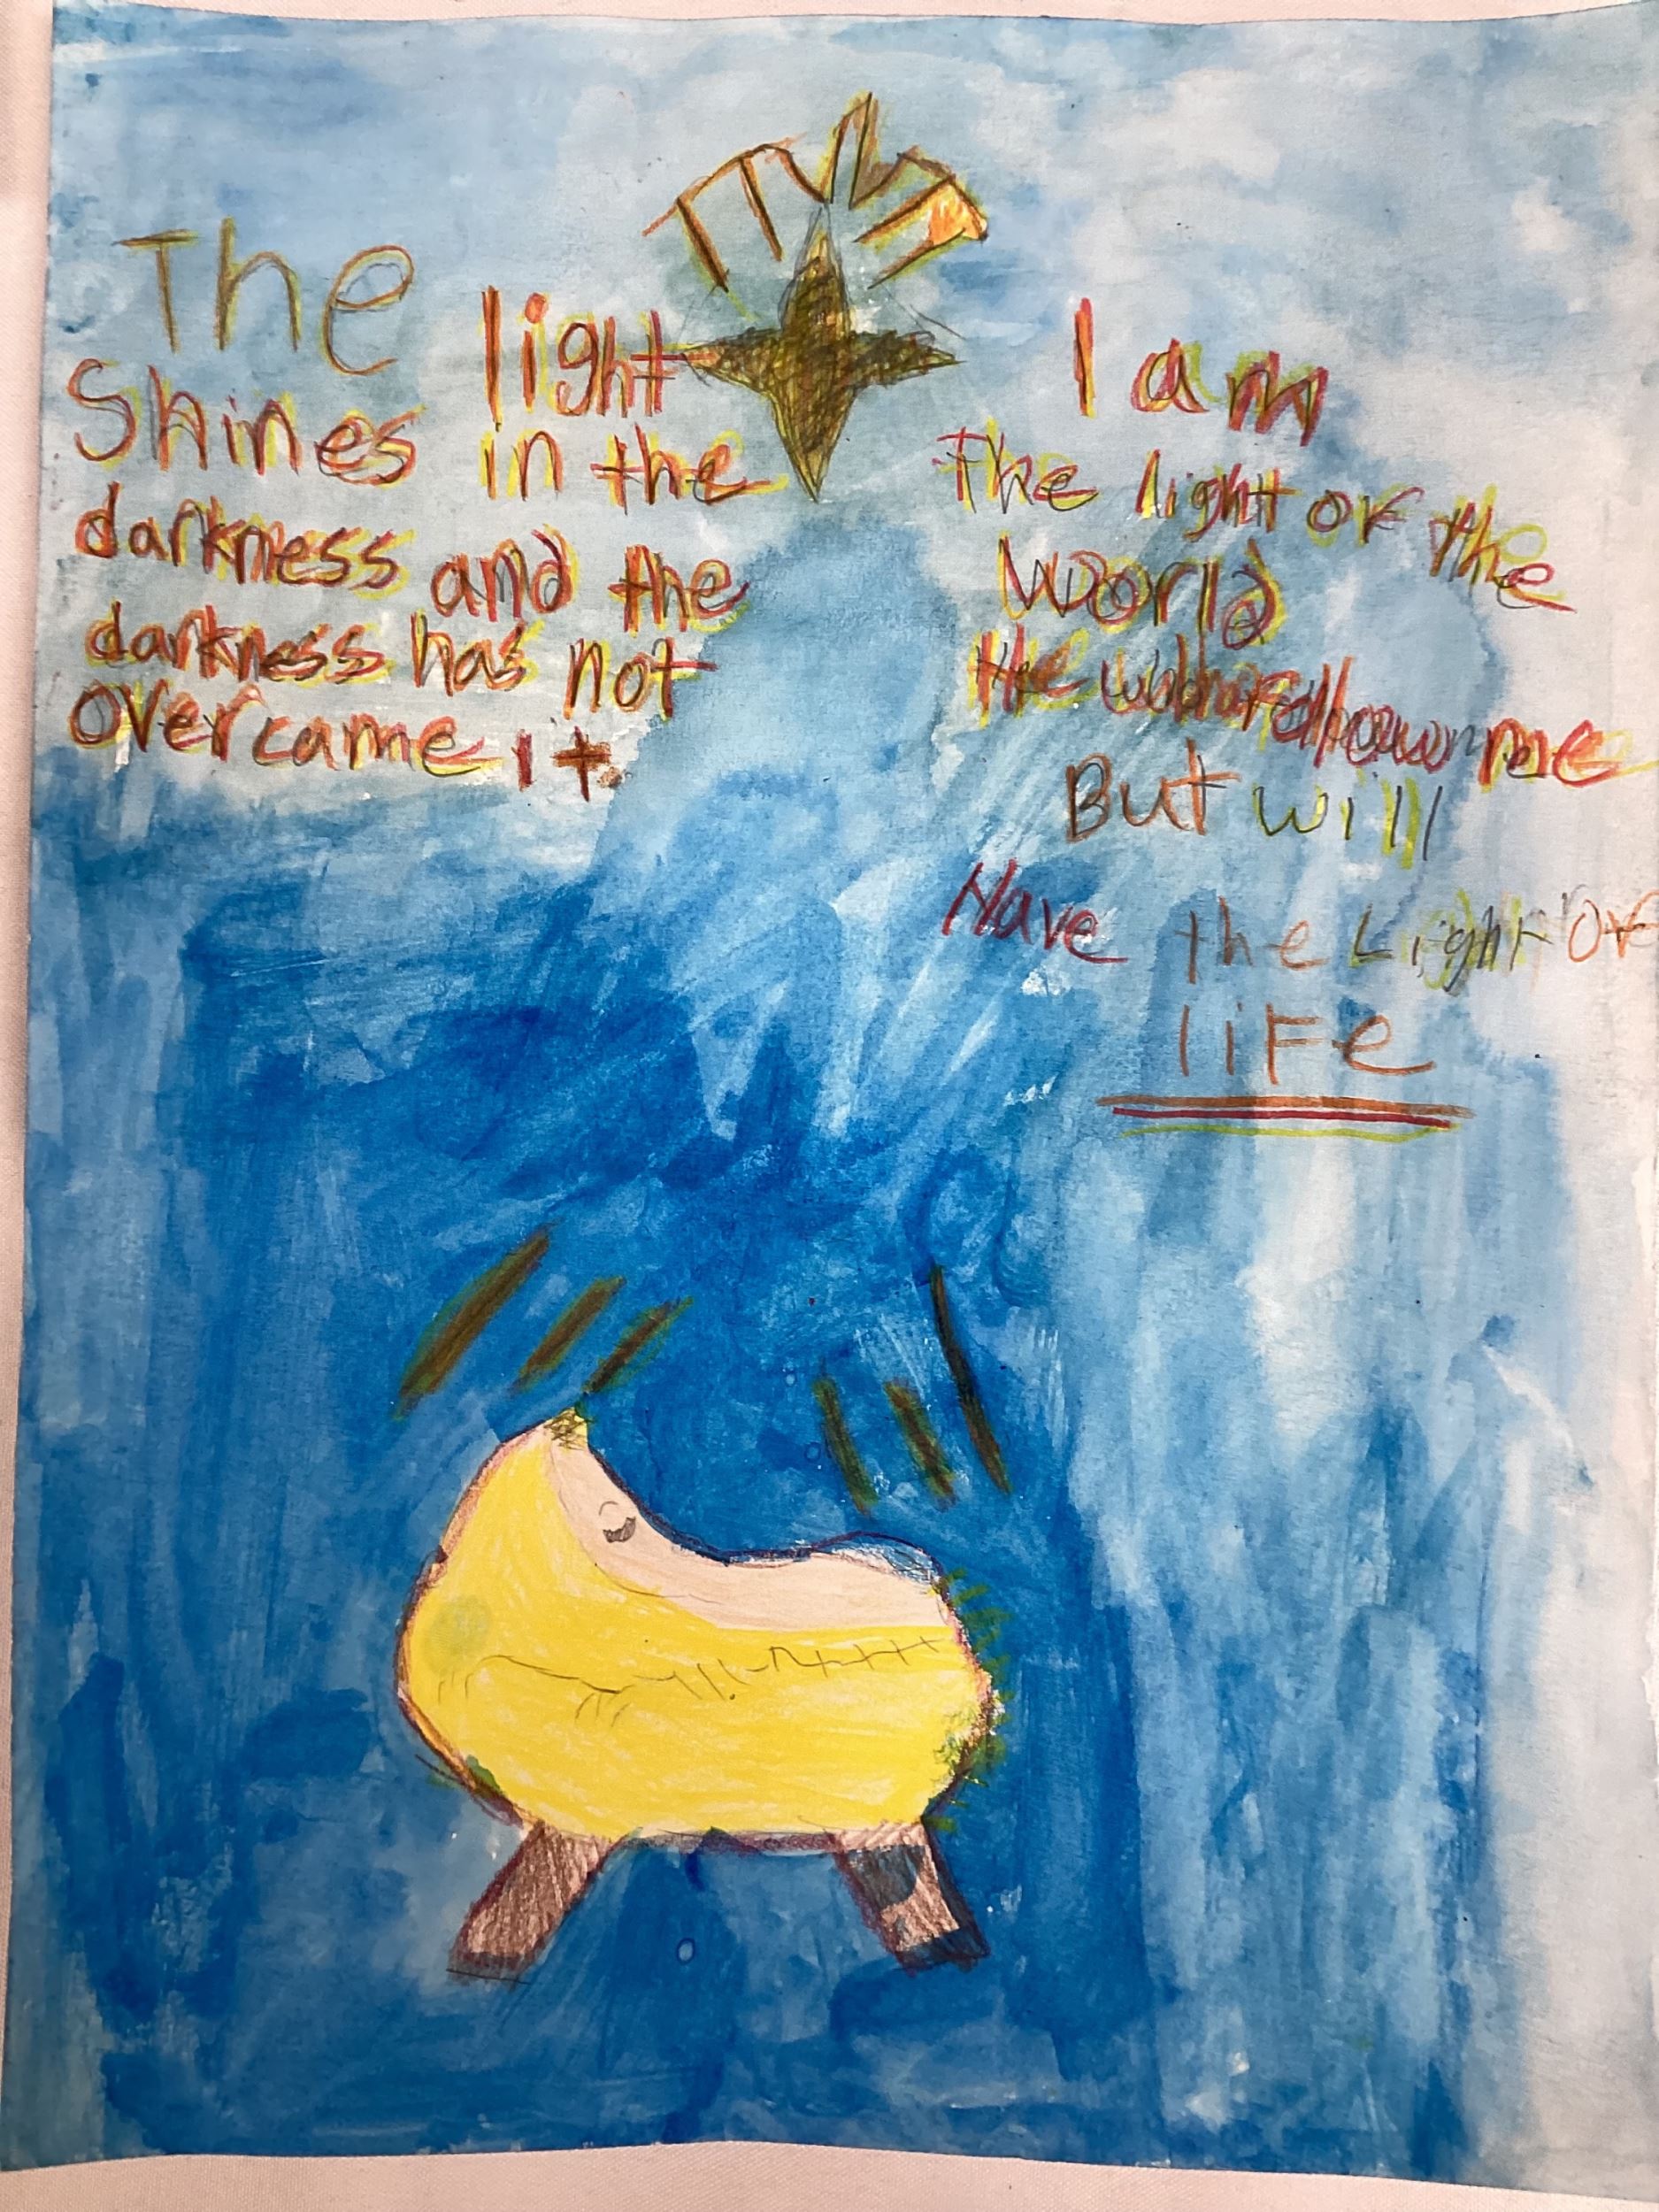 The light
Shines in the
darkness and the
darkness has not
overcame it.
I am
The light of the
World
the me
But will
Have the Light Of
life